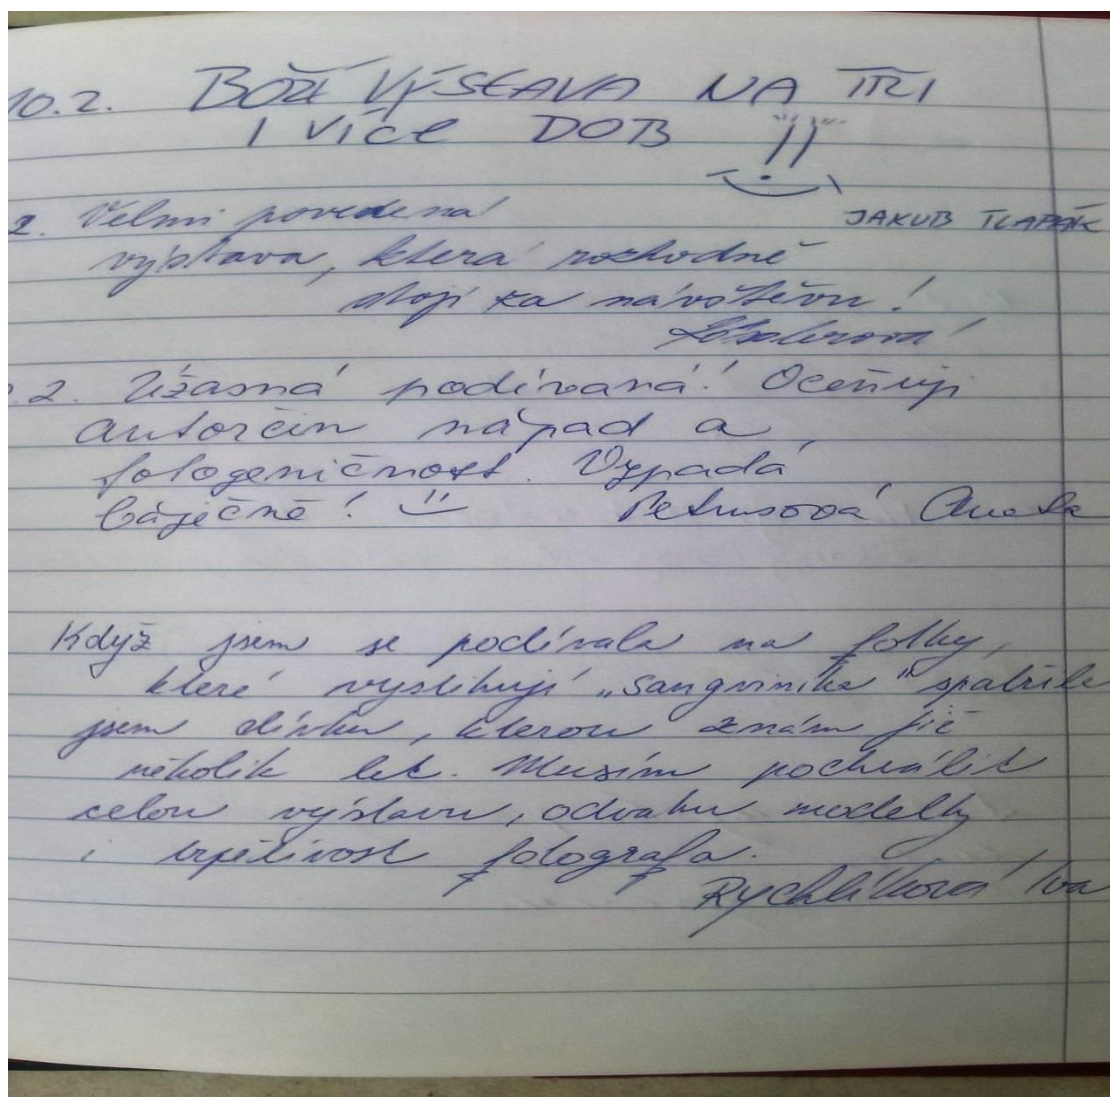 10.2. BOŽÍ VÝSTAVA NA TŘI
I VÍCE DOB !!
JAKUB TLAPÁK
2. Velmi povedená
výstava, která rozhodně
stojí za návštěvu!
.2. Úžasná podívaná! Oceňuji
autorčin nápad a
fotogeničnost. Vypadá
báječně!
Petrusová Aneta
Když jsem se podívala na fotky,
které vystihují „sangvinika“ spatřila
jsem dívku, kterou znám již
několik let. Musím pochválit
celou výstavu, odvahu modelky
i trpělivost fotografa.
Rychlíková Iva